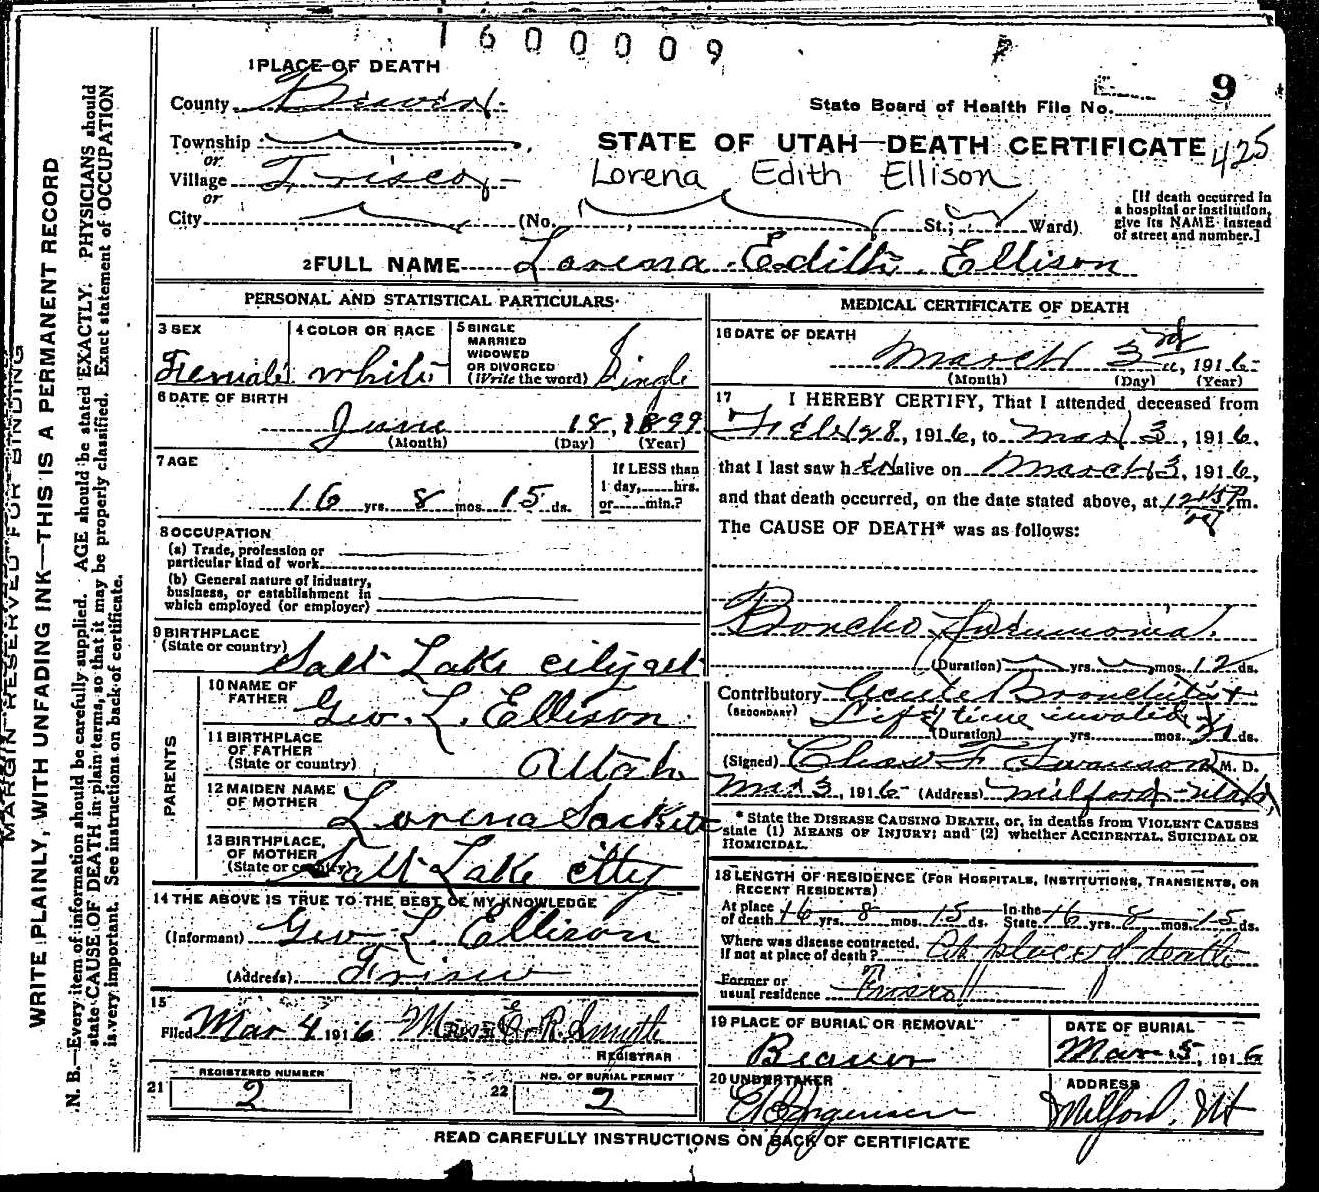 1600009
1 PLACE OF DEATH
9
County Beaver
State Board of Health File No.
Township
STATE OF UTAH—DEATH CERTIFICATE 425
or
Village Frisco
Lorena Edith Ellison
or
City (No. St.; Ward)
[If death occurred in
a hospital or institution,
give its NAME instead
of street and number.]
2 FULL NAME Lorena Edith Ellison
PERSONAL AND STATISTICAL PARTICULARS
3 SEX
Female
4 COLOR OR RACE
white
5 SINGLE
MARRIED
WIDOWED
OR DIVORCED
(Write the word) Single
6 DATE OF BIRTH
June 18, 1899
(Month) (Day) (Year)
7 AGE
16 yrs. 8 mos. 15 ds.
If LESS than
1 day, hrs.
or min.?
8 OCCUPATION
(a) Trade, profession or
particular kind of work
(b) General nature of industry,
business, or establishment in
which employed (or employer)
9 BIRTHPLACE
(State or country) Salt Lake city
PARENTS
10 NAME OF
FATHER Geo. L. Ellison
11 BIRTHPLACE
OF FATHER
(State or country) Utah
12 MAIDEN NAME
OF MOTHER Lorena Sackett
13 BIRTHPLACE
OF MOTHER
(State or country) Salt Lake city
14 THE ABOVE IS TRUE TO THE BEST OF MY KNOWLEDGE
(Informant) Geo L. Ellison
(Address) Frisco
15
Filed Mar 4 1916 E. R. Smyth
REGISTRAR
21 REGISTERED NUMBER
2
22 NO. OF BURIAL PERMIT
2
MEDICAL CERTIFICATE OF DEATH
16 DATE OF DEATH
March 3rd, 1916
(Month) (Day) (Year)
17 I HEREBY CERTIFY, That I attended deceased from
Feb 28, 1916, to Mar 3, 1916,
that I last saw her alive on March 3, 1916,
and that death occurred, on the date stated above, at 12 45 P m.
The CAUSE OF DEATH* was as follows:
Broncho Pneumonia.
(Duration) yrs. mos. 12 ds.
Contributory Acute Bronchitis +
(SECONDARY) Life time invalid
(Duration) yrs. mos. ds.
(Signed) Chas F. Swanson M. D.
Mar 3, 1916 (Address) Milford Utah
* State the DISEASE CAUSING DEATH, or, in deaths from VIOLENT CAUSES
state (1) MEANS OF INJURY; and (2) whether ACCIDENTAL, SUICIDAL OR
HOMICIDAL.
18 LENGTH OF RESIDENCE (FOR HOSPITALS, INSTITUTIONS, TRANSIENTS, OR
RECENT RESIDENTS)
At place
of death 16 yrs. 8 mos. 15 ds. In the
State 16 yrs. 8 mos. 15 ds.
Where was disease contracted,
if not at place of death? At place of death
Former or
usual residence Frisco
19 PLACE OF BURIAL OR REMOVAL
Beaver
DATE OF BURIAL
Mar 5, 1916
20 UNDERTAKER
ADDRESS
Milford, Ut
READ CAREFULLY INSTRUCTIONS ON BACK OF CERTIFICATE
MARGIN RESERVED FOR BINDING
WRITE PLAINLY, WITH UNFADING INK—THIS IS A PERMANENT RECORD
N. B.—Every item of information should be carefully supplied. AGE should be stated EXACTLY. PHYSICIANS should
state CAUSE OF DEATH in plain terms, so that it may be properly classified. Exact statement of OCCUPATION
is very important. See instructions on back of certificate.